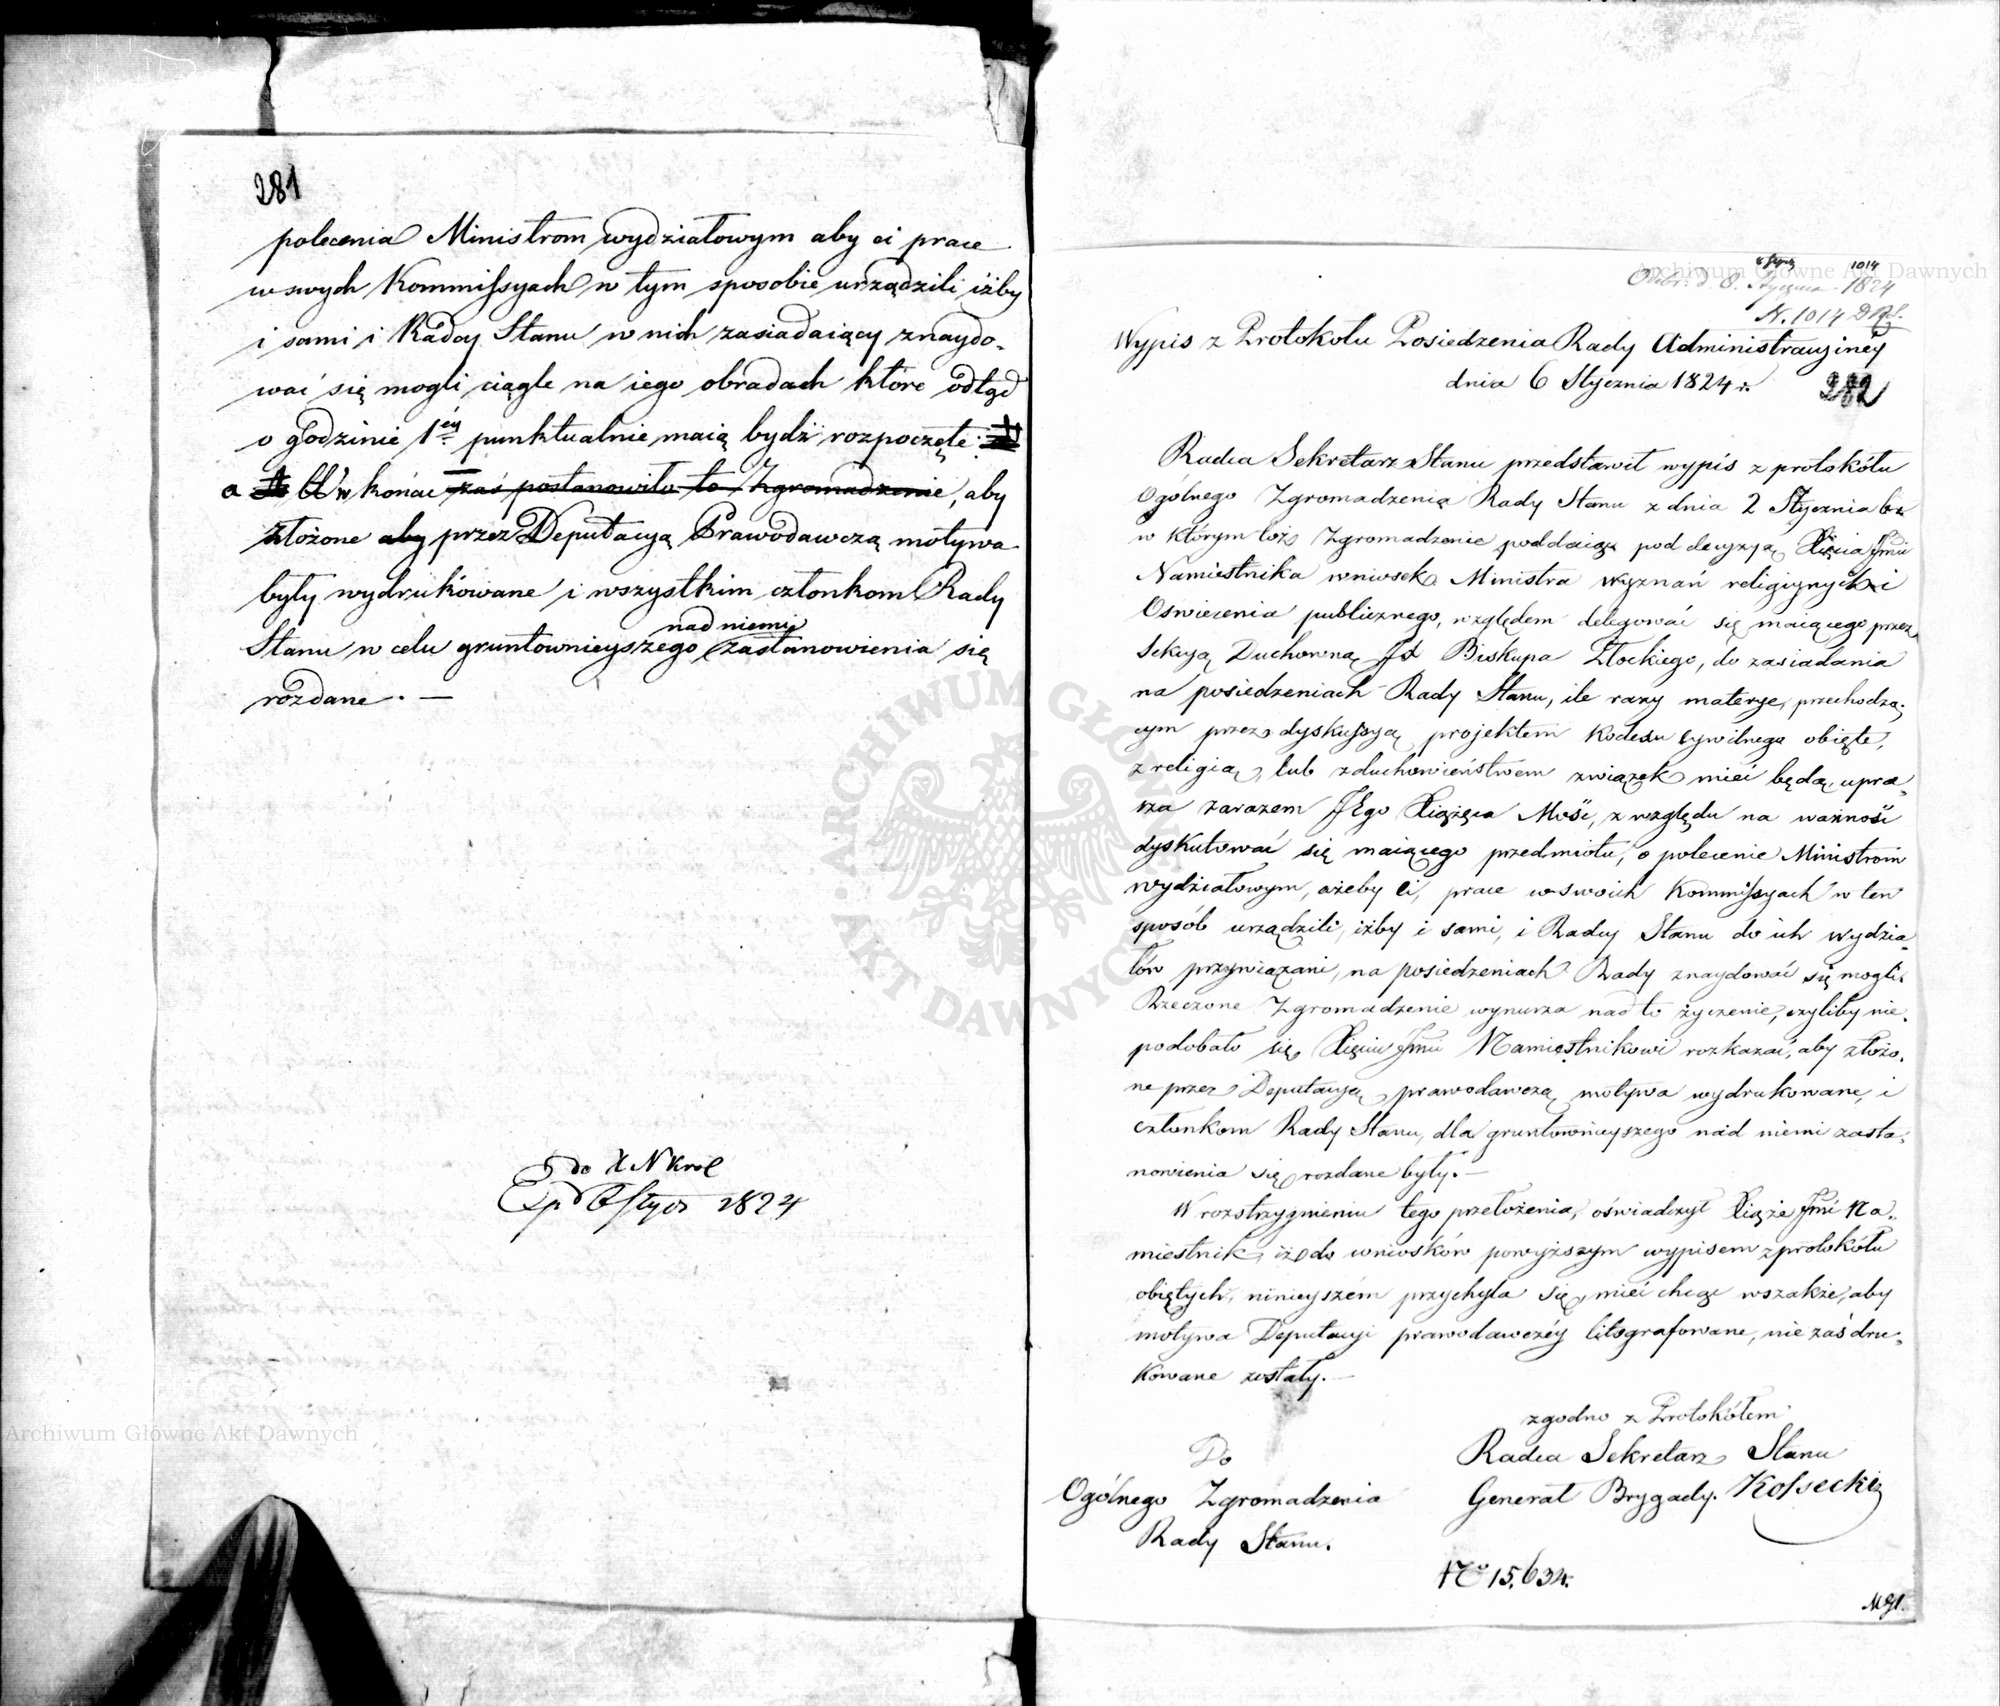 281
polecenia Ministrom wydziałowym aby ci prace
w swych Kommissyach w tym sposobie urządzili iżby
i sami i Radcy Stanu w nich zasiadaiący znaydo-
wać się mogli ciągle na iego obradach które odtąd
o godzinie 1éy punktualnie maią bydź rozpoczęte
a w końcu zaś postanowiło to Zgromadzenie, aby
złożone aby przez Deputacyą Prawodawczą motywa
były wydrukowane i wszystkim członkom Rady
nad niemi
Stanu w celu gruntownieyszego zastanowienia się
rozdane. —
do X N Król
Exp d 6 stycz 1824
Archiwum Główne Akt Dawnych
ARCHIWUM GŁÓWNE AKT DAWNYCH
Archiwum Główne Akt Dawnych
1014
Odbr. d. 8. Stycznia 1824
N. 1014
Wypis z Protokołu Posiedzenia Rady Administracyiney
dnia 6 Stycznia 1824 r.
282
Radca Sekretarz Stanu przedstawił wypis z protokółu
Ogólnego Zgromadzenia Rady Stanu z dnia 2 Stycznia br
w którym toż Zgromadzenie poddaiąc pod decyzyą Xięcia Jmci
Namiestnika wniosek Ministra wyznań religiynych i
Oświecenia publicznego, względem delegować się maiącego przez
Sekcyą Duchowną JX Biskupa Złockiego, do zasiadania
na posiedzeniach Rady Stanu, ile razy materye, przechodzą-
cym przez dyskussyą projektem Kodexu cywilnego obięte,
z religią, lub z duchowieństwem związek mieć będą, upra-
sza zarazem JEgo Xiążęca Mość, z względu na ważność
dyskutować się maiącego przedmiotu, o polecenie Ministrom
wydziałowym, ażeby ci, prace w swoich Kommissyach w ten
sposób urządzili, iżby i sami, i Radcy Stanu do ich wydzia-
łów przywiązani, na posiedzeniach Rady znaydować się mogli.
Rzeczone Zgromadzenie wynurza nad to życzenie, czyliby nie-
podobało się Xięciu Jmci Namiestnikowi rozkazać, aby złożo-
ne przez Deputacyą prawodawczą motywa wydrukowane, i
członkom Rady Stanu, dla gruntownieyszego nad niemi zasta-
nowienia się rozdane były. —
W rozstrzygnieniu tego przełożenia, oświadczył Xiąże Jmć Na-
miestnik, iż do wniosków powyższym wypisem z protokółu
obiętych, ninieyszém przychyla się, mieć chcąc wszakże, aby
motywa Deputacyi prawodawczéy litografowane, nie zaś dru-
kowane zostały. —
zgodno z Protokółem
Radca Sekretarz Stanu
Generał Brygady. Kossecki
Do
Ogólnego Zgromadzenia
Rady Stanu.
No 15,634.